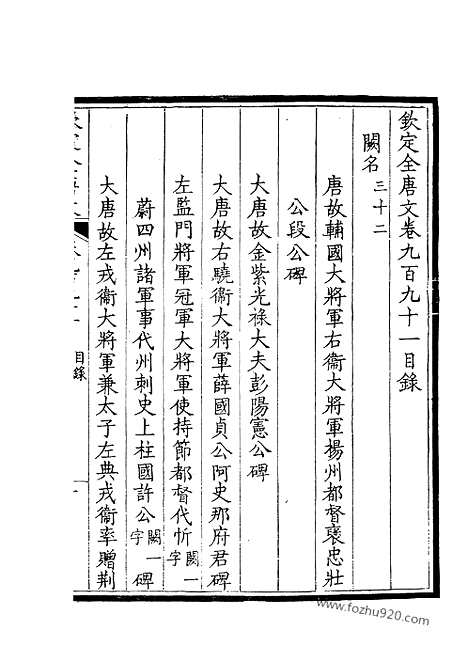 欽定全唐文卷九百九十一目錄
闕名三十二
唐故輔國大將軍右衞大將軍揚州都督襃忠壯
公段公碑
大唐故金紫光祿大夫彭陽憲公碑
大唐故右驍衞大將軍薛國貞公阿史那府君碑
左監門將軍冠軍大將軍使持節都督代忻闕一字
蔚四州諸軍事代州刺史上柱國許公闕一字碑
大唐故左戎衞大將軍兼太子左典戎衞率贈荆
目錄
www.fozhu920.com